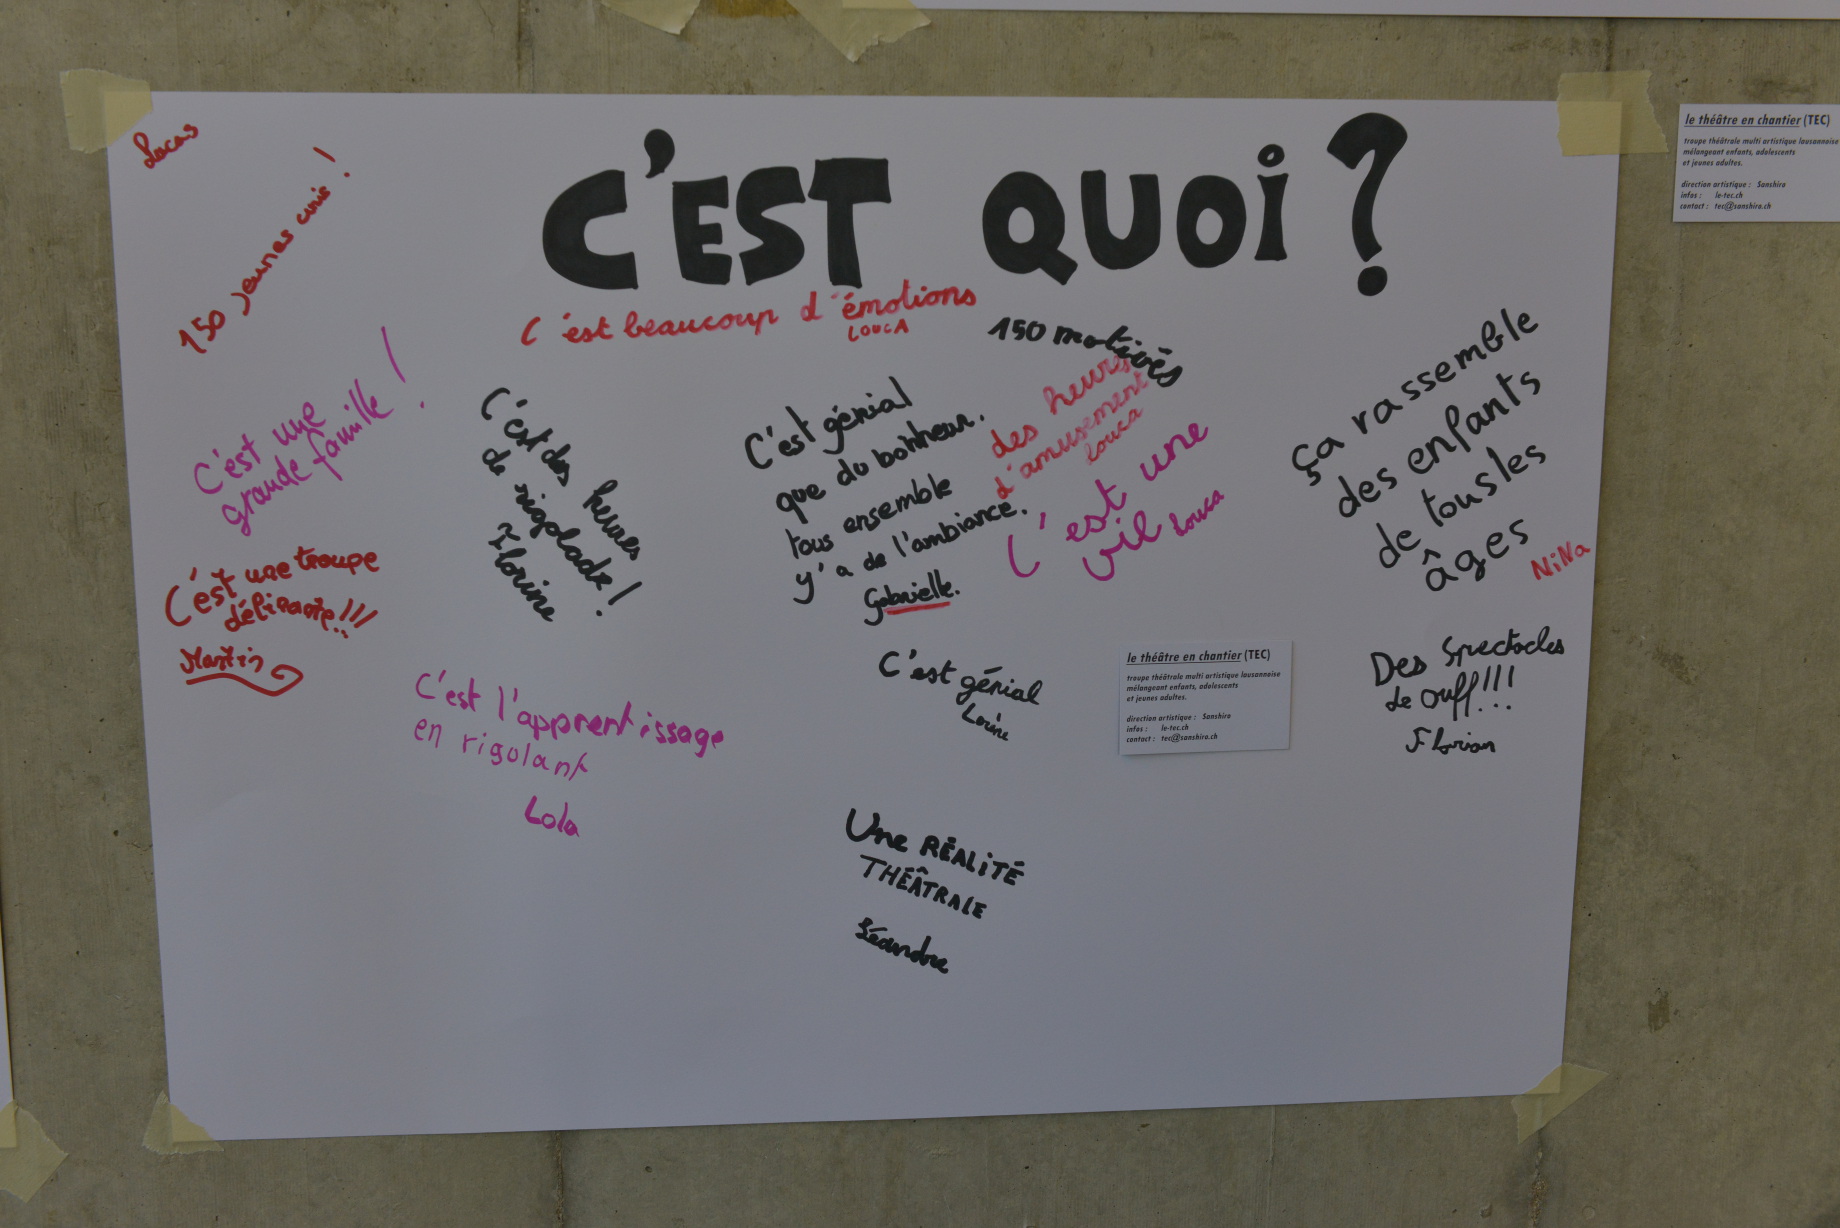 C'EST QUOi ?
Lucas
150 jeunes unis !
C'est beaucoup d'émotions
LOUCA
150 motivés
C'est une
grande famille !
C'est des heures
de rigolade !
Florine
C'est génial
que du bonheur.
tous ensemble
y'a de l'ambiance.
Gabrielle.
des heures
d'amusement
louca
C'est une
vil
louca
ça rassemble
des enfants
de tous les
âges
NiNa
C'est une troupe
délirante!!!
Martin
C'est l'apprentissage
en rigolant
Lola
C'est génial
Lorine
Des spectacles
de ouff!!!
Florian
Une RÉALiTÉ
THÉÂTRALE
le théâtre en chantier (TEC)
troupe théâtrale multi artistique lausannoise
mélangeant enfants, adolescents
et jeunes adultes.
direction artistique : Sanshiro
infos : le-tec.ch
contact : tec@sanshiro.ch
le théâtre en chantier (TEC)
troupe théâtrale multi artistique lausannoise
mélangeant enfants, adolescents
et jeunes adultes.
direction artistique : Sanshiro
infos : le-tec.ch
contact : tec@sanshiro.ch